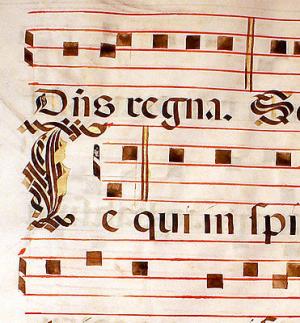 Dñs regna. Se
Te qui in ſpi